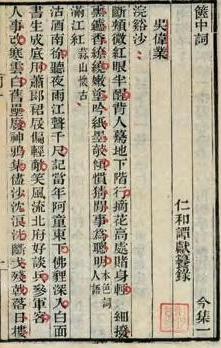 篋中詞　今集一
仁和譚獻纂錄
吳偉業
浣谿沙
斷頰微紅眼半醒背人驀地下階行摘花高處賭身輕　細撥
熏鑪香繚繞嫩塗吟紙墨欹傾慣猜閒事為聰明　本色詞人語
滿江紅　蒜山懷古
沽酒南徐聽夜雨江聲千尺記當年阿童東下佛貍深入白面
書生成底用蕭郎裙屐偏輕敵笑風流北府好談兵參軍客
人事改寒雲白舊壘廢神鴉集儘沙沈浪洗斷戈殘戟落日樓